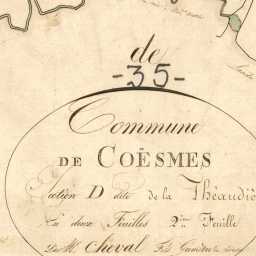 de
-35-
Commune
DE COËSMES
Section D dite de la Théaudiè
En deux Feuilles 2.me Feuille
Par M. Cheval